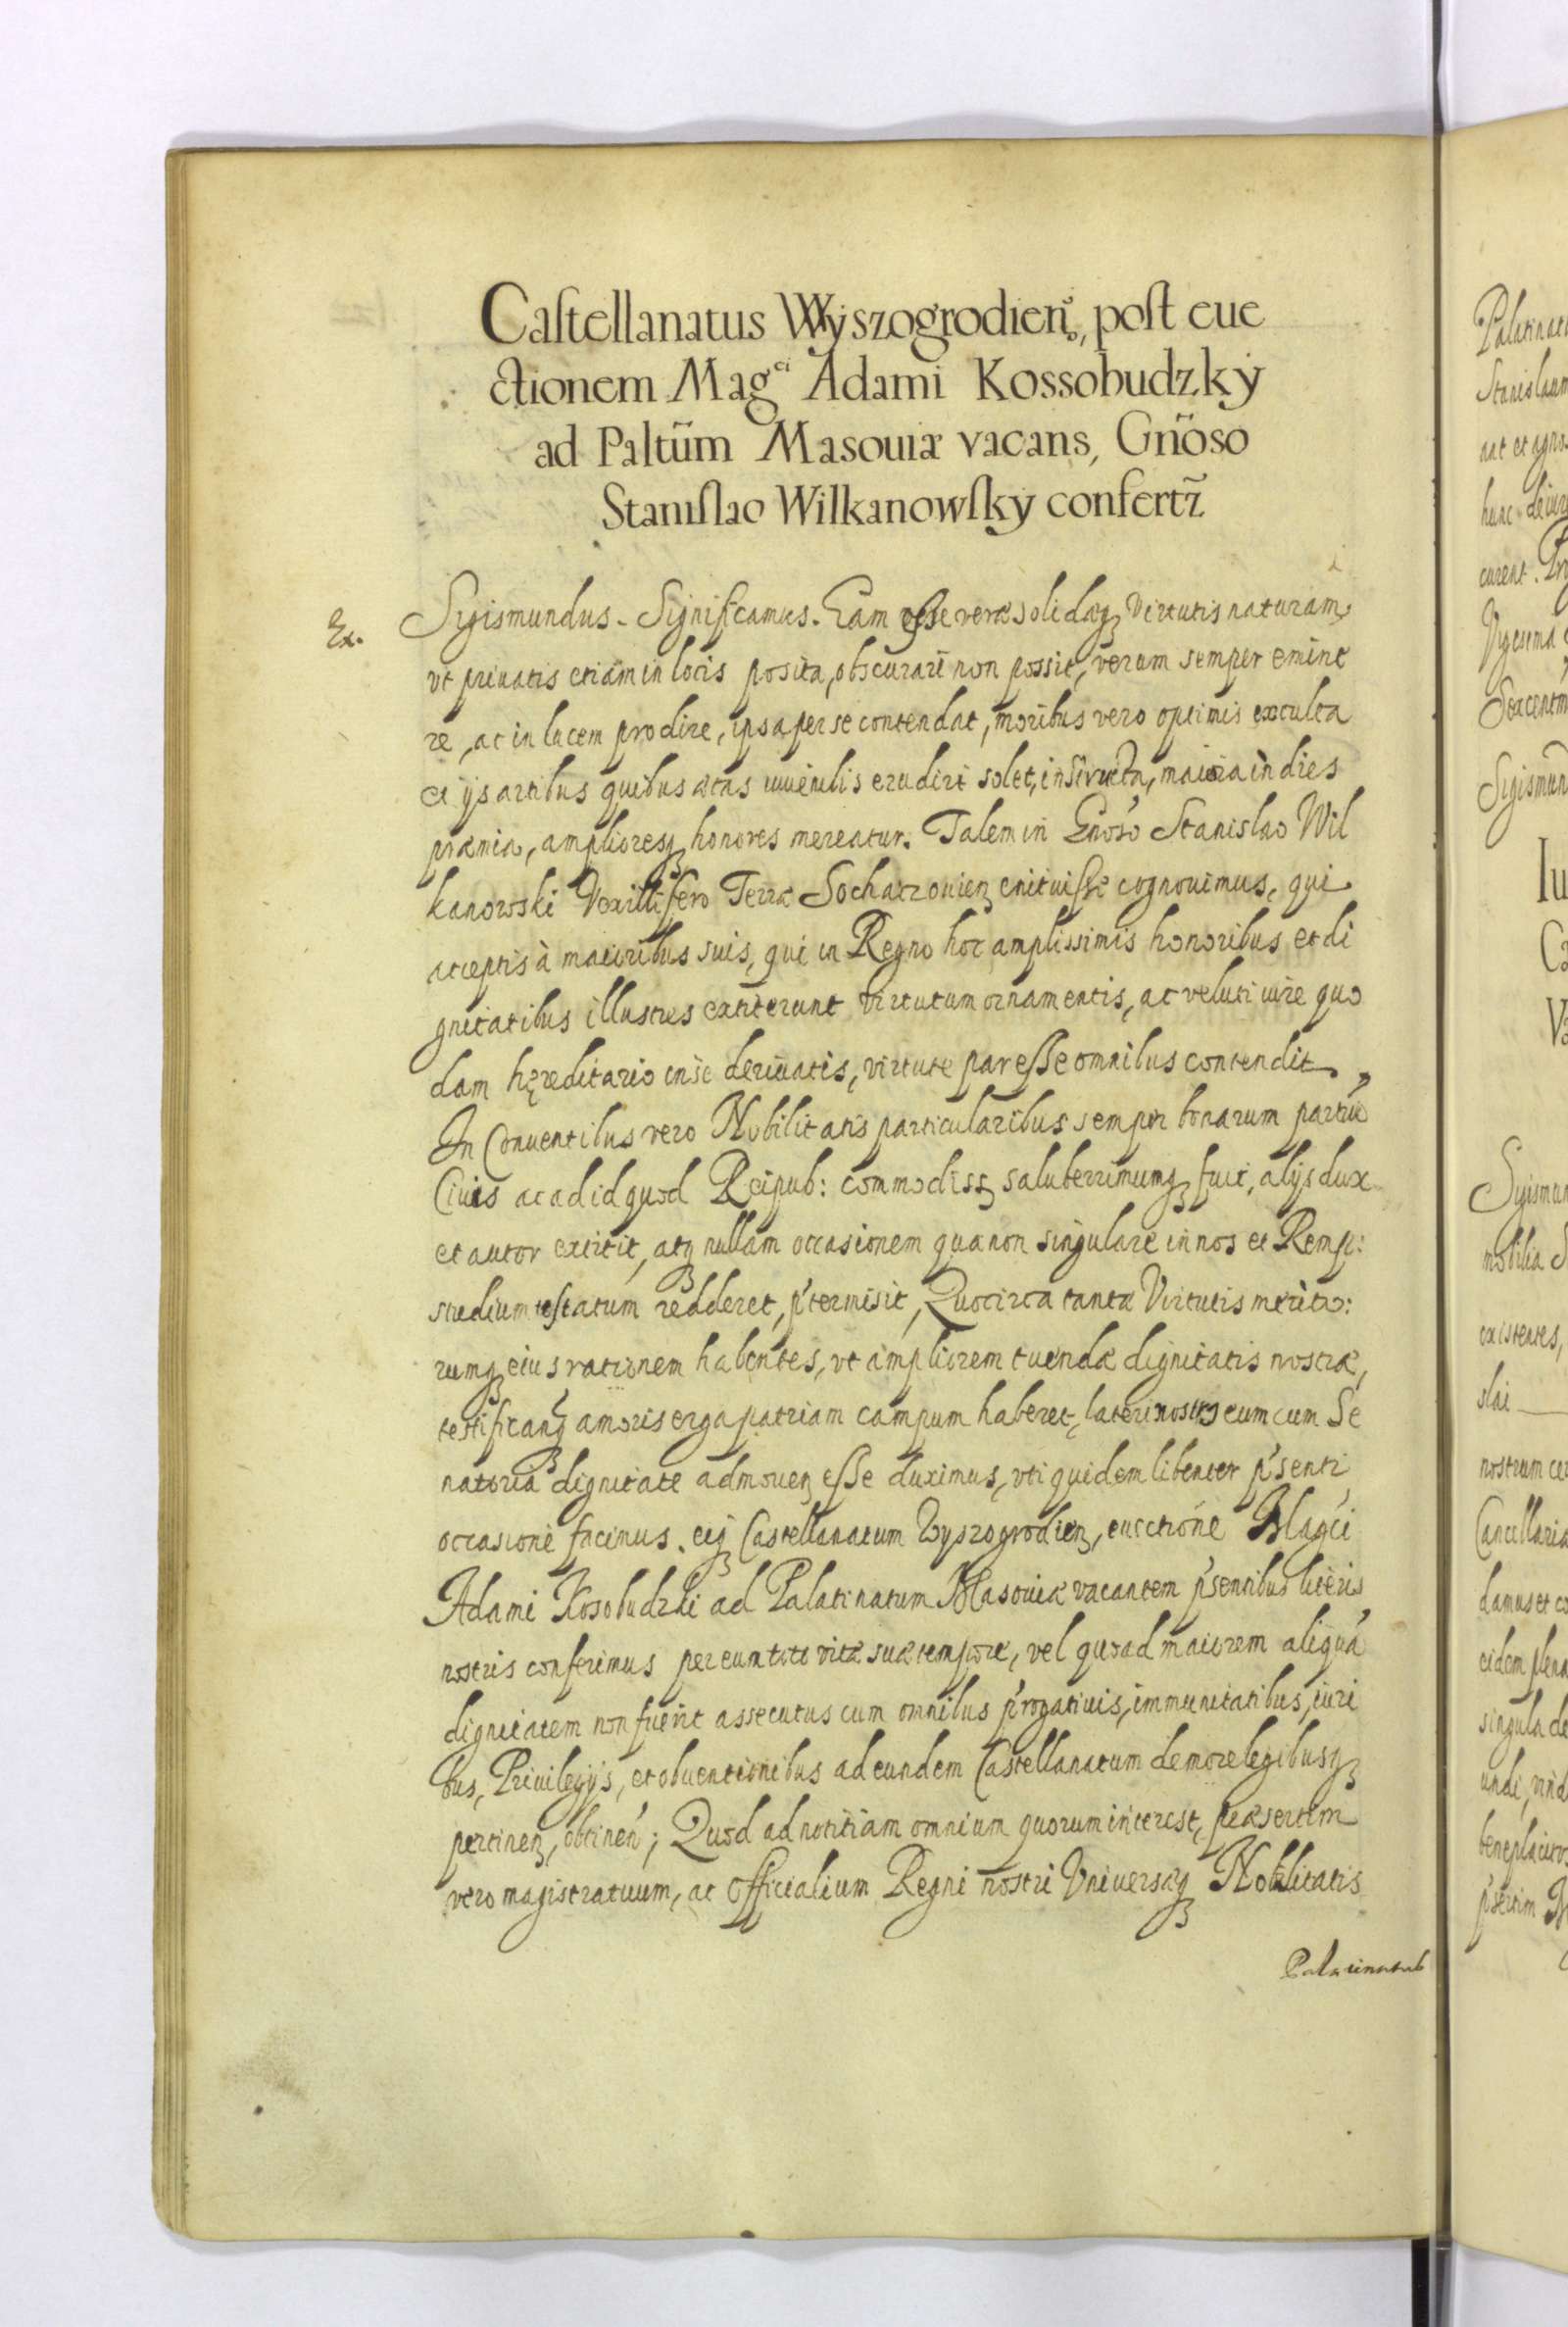 Castellanatus Wyszogrodien̄, post eue
ctionem Mag^ci Adami Kossobudzky
ad Paltum̄ Masouiæ vacans, Gn̄oso
Stanislao Wilkanowsky confertꝫ
Ex. Sigismundus. Significamus. Eam esse veræ solidæqꝫ virtutis naturam,
vt priuatis etiam in locis posita, obscurari non possit, verum semper emine
re, ac in lucem prodire, ipsa per se contendat, moribus vero optimis exculta
et ijs artibus quibus ætas iuuenilis erudiri solet, instructa, maiora in dies
præmia, ampliores qꝫ honores mereatur. Talem in Gnoso Stanislao Wil
kanowski Vexillifero Terræ Sochaczouienꝫ enituisse cognouimus, qui
acceptis à maioribus suis, qui in Regno hoc amplissimis honoribus et di
gnitatibus illustres extiterunt virtutum ornamentis, ac veluti iure quo
dam hęreditario in se deriuatis, virtute par esse omnibus contendit,
In Conuentibus vero Nobilitatis particularibus semper bonarum partiū
Ciuis ac ad id quod Reipub: commodissꝫ saluberrimumqꝫ fuit, alijs dux
et autor extitit, atqꝫ nullam occasionem qua non singulare in nos et Remp:
studium testatum redderet, p'termisit, Quocirca tantæ Virtutis merito:
rumqꝫ eius rationem habentes, vt ampliorem tuendæ dignitatis nostræ,
testificandiqꝫ amoris erga patriam campum haberet, lateri nostro eum cum Se
natoria dignitate admouenꝫ esse duximus, vti quidem libenter p'senti
occasione facimus. eiqꝫ Castellanatum Wyszogrodienꝫ, euectione Mag'ci
Adami Kosobudzki ad Palatinatum Masouiæ vacantem p'sentibus literis
nostris conferimus per eum toto vitæ suæ tempore, vel quoad maiorem aliquā
dignitatem non fuerit assecutus cum omnibus p'rogatiuis, immunitatibus, iuri
bus, Priuilegijs, et obuentionibus ad eundem Castellanatum de more legibusqꝫ
pertinenꝫ, obtinen'; Quod ad notitiam omnium quorum interest, præsertim
vero magistratuum, ac Officialium Regni nostri Vniuersæqꝫ Nobilitatis
Palatinatus
Palatinatu
Stanislaum
hunc
curent.
Vigesima
Sigismun
Iu
Ca
Sigismun
mobilia
existentes,
slai
nostrum
Cancellaria
damus et co
eidem plena
singula de
p'sertim